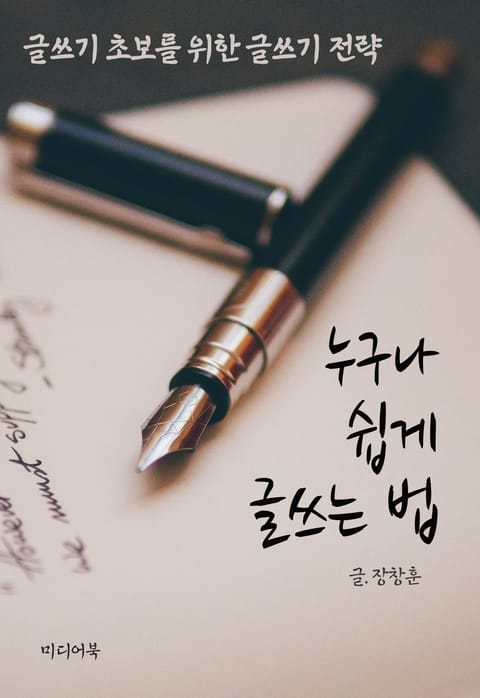 글쓰기 초보를 위한 글쓰기 전략
누구나
쉽게
글쓰는 법
글. 장창훈
"However
we must
미디어북